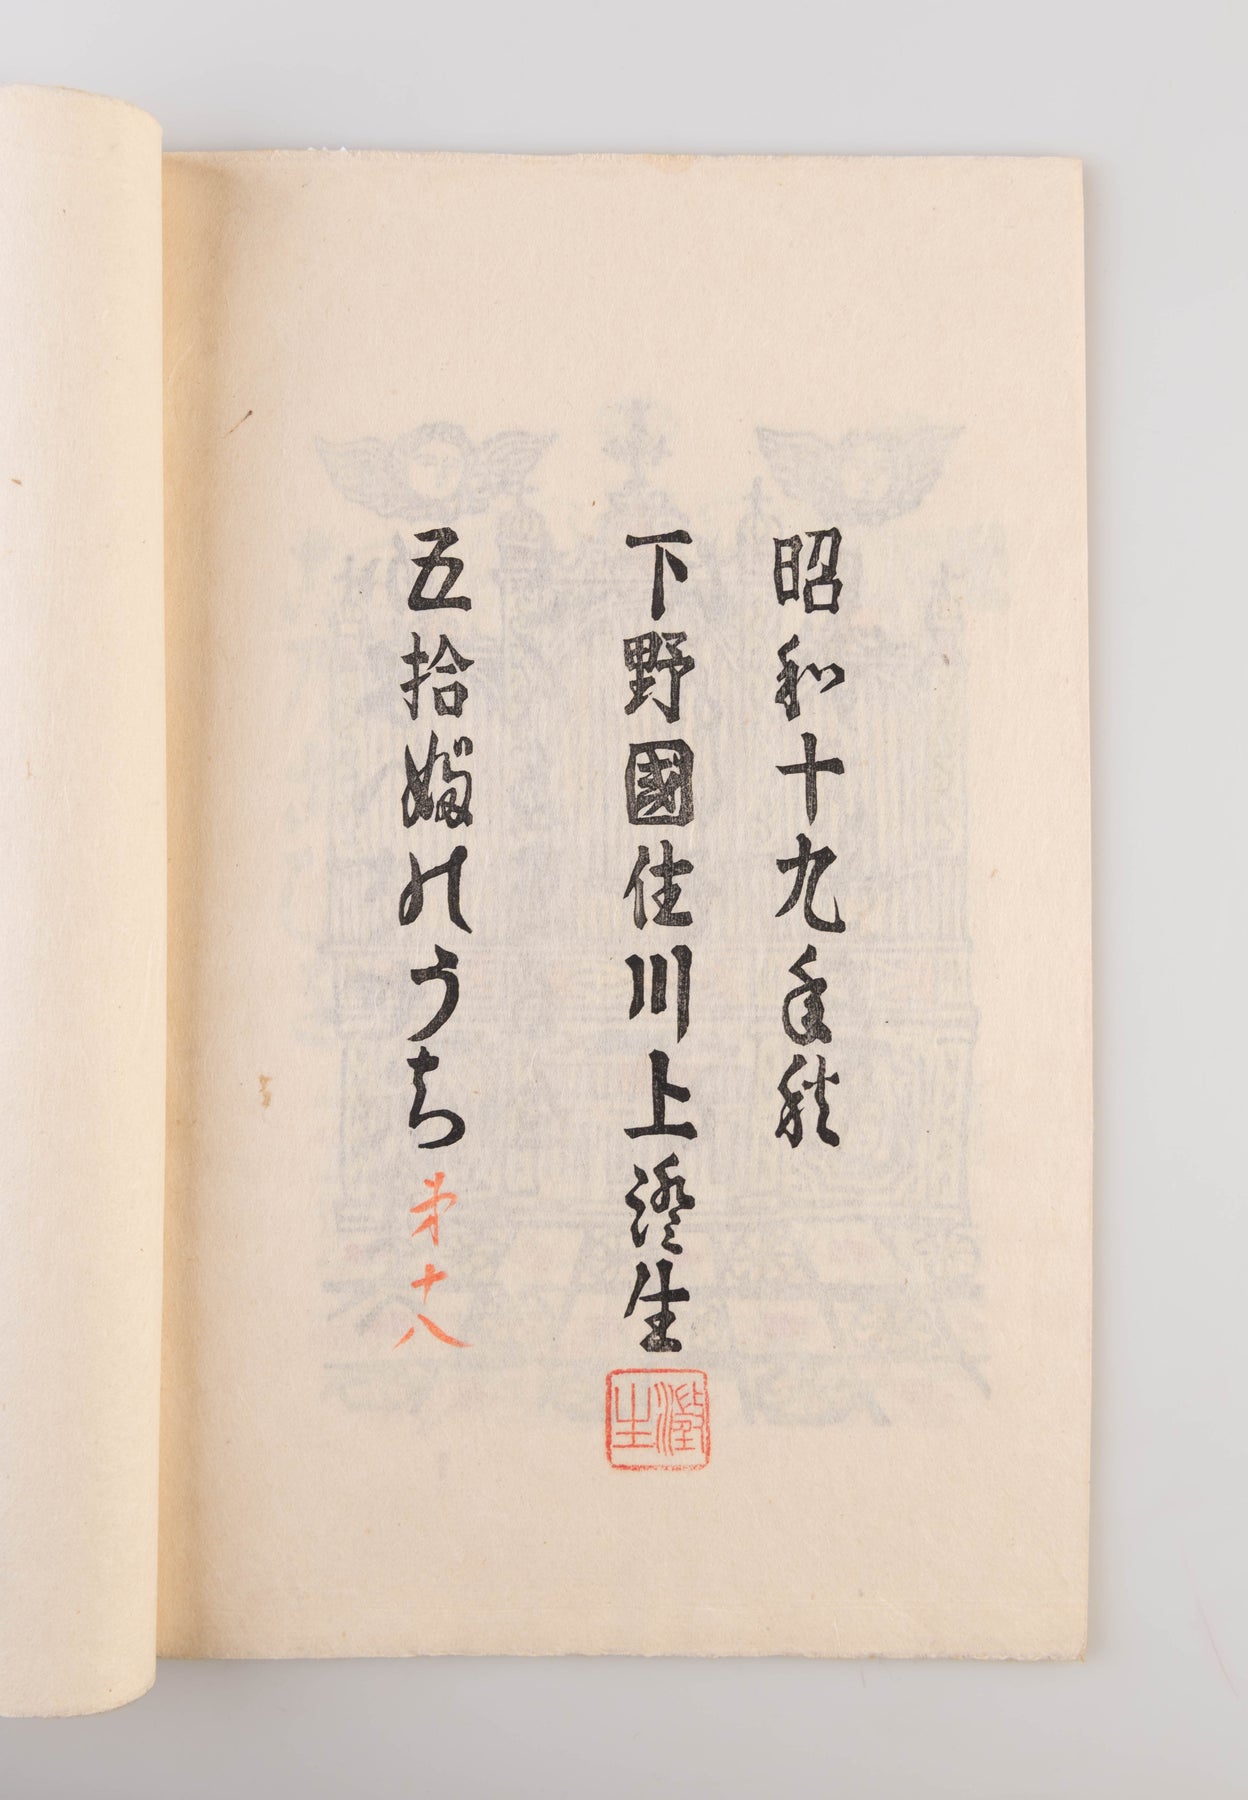 昭和十九年秋
下野國住川上澄生
澂生
五拾婦゛のうち 第十八